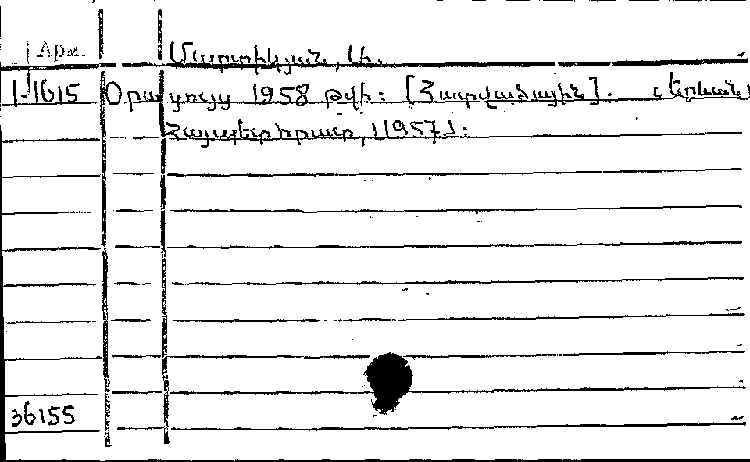 Արև. Մարտիկյան, Ս.
I-1615 Օրացույց 1958 թվի: [Հարվածային]. Երևան,
Հայպետհրատ, [1957]:
36155